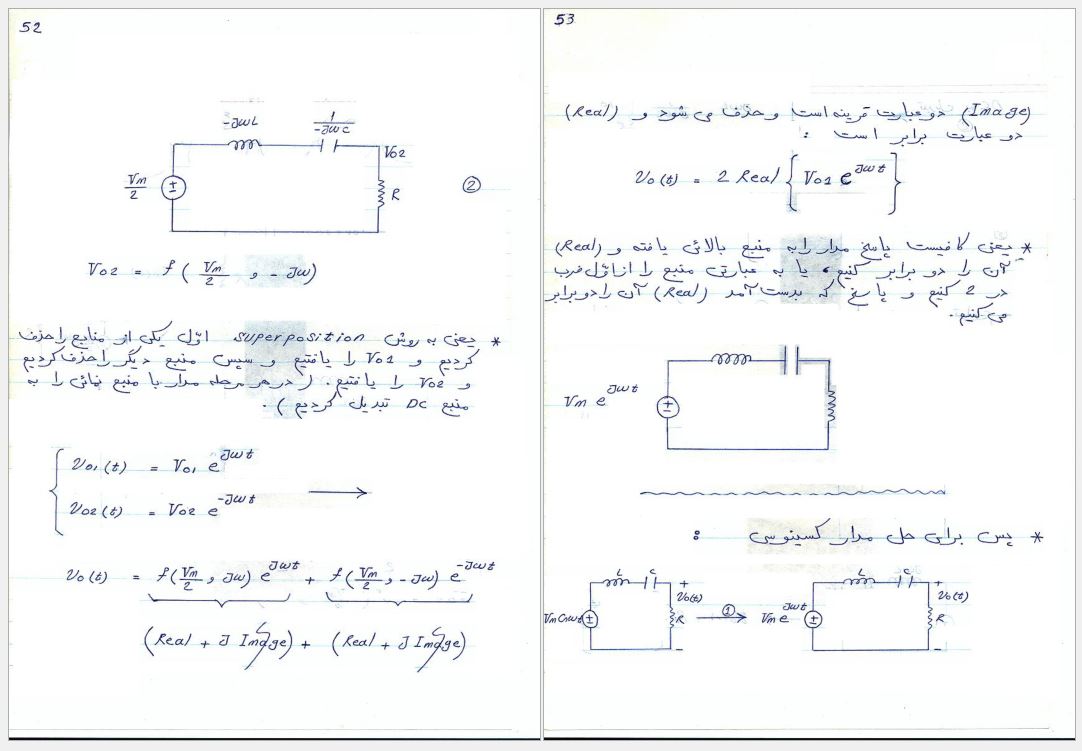 52
-JωL
1/-Jωc
Vo2
Vm/2
±
R
②
Vo2 = f ( Vm/2 , - Jω)
* یعنی به روش superposition اوّل یکی از منابع را حذف
کردیم و Vo1 را یافتیم و سپس منبع دیگر را حذف کردیم
و Vo2 را یافتیم. (در هر مرحله مدار با منبع نمائی را به
منبع DC تبدیل کردیم).
Vo1(t) = Vo1 e^Jωt
Vo2(t) = Vo2 e^-Jωt
Vo(t) = f(Vm/2 , Jω) e^Jωt + f(Vm/2 , -Jω) e^-Jωt
(Real + J Image) + (Real + J Image)
53
(Image) دو عبارت قرینه است و حذف می شود و (Real)
دو عبارت برابر است :
Vo(t) = 2 Real { Vo1 e^Jωt }
* یعنی کافیست پاسخ مدار را به منبع بالائی یافته و (Real)
آن را دو برابر کنیم، یا به عبارتی منبع را از اوّل ضرب
در 2 کنیم و پاسخ که بدست آمد (Real) آن را دو برابر
می کنیم.
Vm e^Jωt
±
* پس برای حل مدار کسینوسی :
L
c
+
Vo(t)
Vm Cosωt
±
R
-
①
Vm e^Jωt
±
L
c
+
Vo(t)
R
-